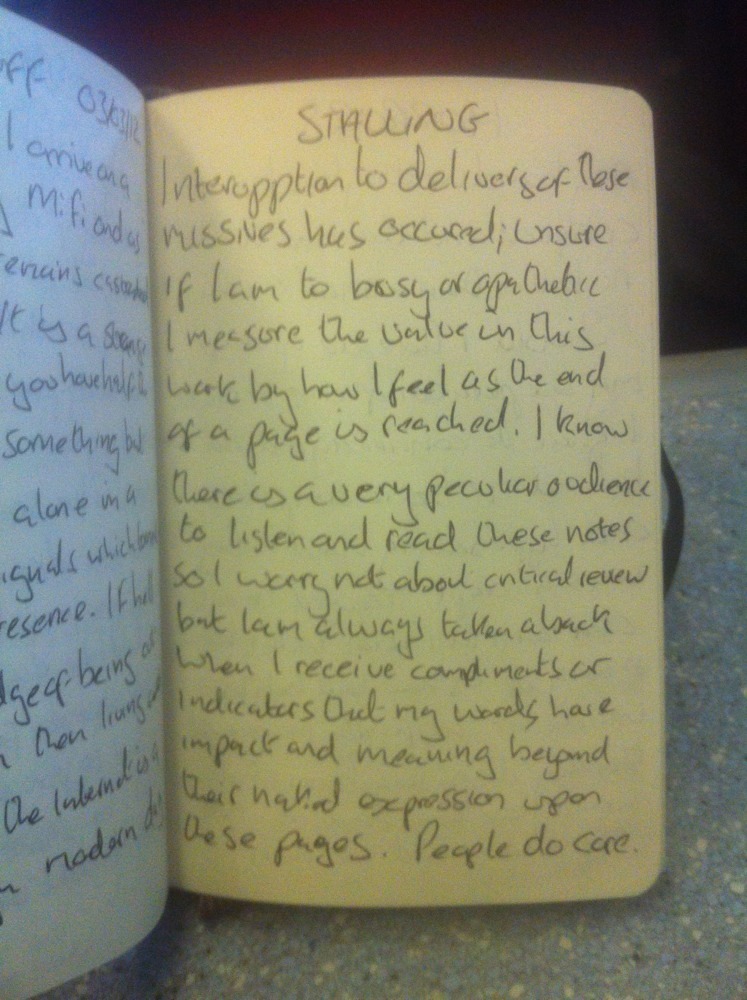 ff 03/03/12
I arrive on a
Mifi and as
remains
It is a strange
you have half
something but
alone in a
ignals which
resence. If
dge of being
then living
the Internet is a
modern
STALLING
Interupption to delivery of these
missives has occured; unsure
if I am to busy or apathetic
I measure the value in this
work by how I feel as the end
of a page is reached. I know
there is a very peculiar audience
to listen and read these notes
so I worry not about critical review
but I am always taken aback
when I receive compliments or
indicators that my words have
impact and meaning beyond
their naked expression upon
these pages. People do care.